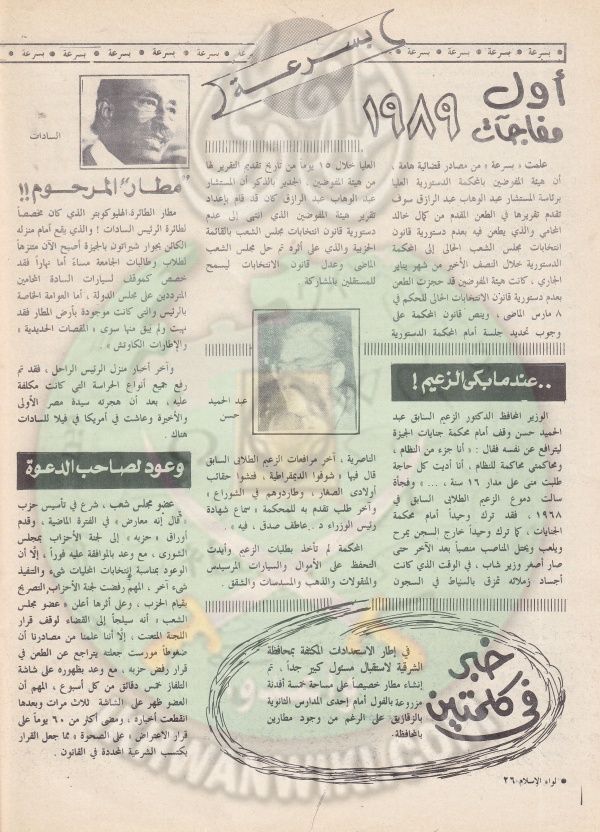 بسرعة
● بسرعة ● بسرعة ● بسرعة ● بسرعة ● بسرعة ● بسرعة ● بسرعة ● بسرعة
أول
مفاجآت
١٩٨٩
علمت « بسرعة » من مصادر قضائية هامة ،
أن هيئة المفوضين بالمحكمة الدستورية العليا
برئاسة المستشار عبد الوهاب عبد الرازق سوف
تقدم تقريرها فى الطعن المقدم من كمال خالد
المحامى والذى يطعن فيه بعدم دستورية قانون
انتخابات مجلس الشعب الحالى إلى المحكمة
الدستورية خلال النصف الأخير من شهر يناير
الجارى ، كانت هيئة المفوضين قد حجزت الطعن
بعدم دستورية قانون الانتخابات الحالى للحكم فى
٨ مارس الماضى ، وينص قانون المحكمة على
وجوب تحديد جلسة أمام المحكمة الدستورية
العليا خلال ١٥ يوماً من تاريخ تقديم التقرير لها
من هيئة المفوضين . الجدير بالذكر أن المستشار
عبد الوهاب عبد الرازق كان قد قام بإعداد
تقرير هيئة المفوضين الذى انتهى إلى عدم
دستورية قانون انتخابات مجلس الشعب بالقائمة
الحزبية والذى على أثره تم حل مجلس الشعب
الماضى وعدل قانون الانتخابات ليسمح
للمستقلين بالمشاركة
عبد الحميد
حسن
..عندما بكى الزعيم !
الوزير المحافظ الدكتور الزعيم السابق عبد
الحميد حسن وقف أمام محكمة جنايات الجيزة
ليترافع عن نفسه فقال : « أنا جزء من النظام ،
ومحاكمتى محاكمة للنظام ، أنا أديت كل حاجة
طلبت منى على مدار ١٦ سنة ، ... » وفجأة
سالت دموع الزعيم الطلابى السابق فى
١٩٦٨ ، فقد ترك وحيداً أمام محكمة
الجنايات ، كما ترك وحيداً خارج السجن يمرح
ويلعب ويحتل المناصب منصباً بعد الآخر حتى
صار أصغر وزير شاب ، فى الوقت الذى كانت
أجساد زملائه تمزق بالسياط فى السجون
الناصرية ، آخر مرافعات الزعيم الطلابى السابق
قال فيها « شوفوا الديمقراطية ، فتشوا حقائب
أولادى الصغار ، وطاردوهم فى الشوراع »
وآخر طلب تقدم به للمحكمة « سماع شهادة
رئيس الوزراء د . عاطف صدقى ، فيه » .
المحكمة لم تأخذ بطلبات الزعيم وأيدت
التحفظ على الأموال والسيارات المرسيدس
والمقولات والذهب والمسدسات والشقق .
خبر
فى كلمتين
فى إطار الاستعدادات المكثفة بمحافظة
الشرقية لاستقبال مسئول كبير جداً ، تم
إنشاء مطار خصيصاً على مساحة خمسة أفدنة
مزروعة بالفول أمام إحدى المدارس الثانوية
بالزقازيق على الرغم من وجود مطارين
بالمحافظة.
السادات
"مطار" المرحوم !!
مطار الطائرة الهليوكوبتر الذى كان مخصصاً
لطائرة الرئيس السادات ! والذى يقع أمام منزله
الكائن بجوار شيراتون بالجيزة أصبح الآن متنزهاً
لطلاب وطالبات الجامعة مساءً أما نهاراً فقد
خصص كموقف لسيارات السادة المحامين
المترددين على مجلس الدولة ، أما العوامة الخاصة
بالرئيس والتى كانت موجودة بأرض المطار فقد
نهبت ولم يبق منها سوى « المقصات الحديدية »
والإطارات الكاوتش » .
وآخر أخبار منزل الرئيس الراحل ، فقد تم
رفع جميع أنواع الحراسة التى كانت مكلفة
عليه ، بعد أن هجرته سيدة مصر الأولى
والأخيرة وعاشت فى أمريكا فى فيلا للسادات
هناك .
وعود لصاحب الدعوة
عضو مجلس شعب ، شرع فى تأسيس حزب
قال إنه معارض » فى الفترة الماضية ، وقدم
أوراق « حزبه » إلى لجنة الأحزاب بمجلس
الشورى ، مع وعد بالموافقة عليه فوراً ، إلّا أن
الوعود بمناسبة إنتخابات المحليات شىء والتنفيذ
شىء آخر ، المهم رفضت لجنة الأحزاب التصريح
بقيام الحزب ، وعلى أثرها أعلن « عضو مجلس
الشعب » أنه سيلجأ إلى القضاء لوقف قرار
اللجنة المتعنت ، إلّا أننا علمنا من مصادرنا أن
ضغوطاً مورست جعلته يتراجع عن الطعن فى
قرار رفض حزبه ، مع وعد بظهوره على شاشة
التلفاز خمس دقائق من كل أسبوع ، المهم أن
العضو ظهر على الشاشة ثلاث مرات وبعدها
انقطعت أخباره ، ومضى أكثر من ٦٠ يوماً على
قرار الاعتراض « على الصحوة » مما جعل القرار
يكتسب الشرعية المحددة فى القانون .
● لواء الإسلام ٢٦